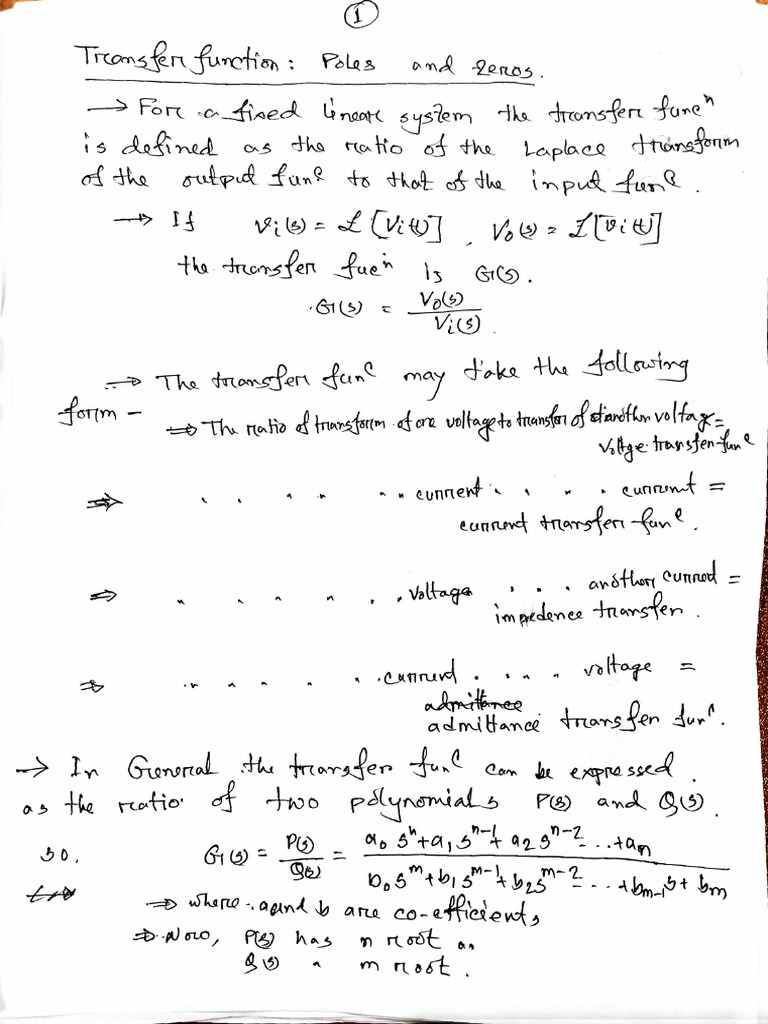 1
Transfer function: Poles and zeros.
→ For a fixed linear system the transfer funcⁿ
is defined as the ratio of the Laplace transform
of the output funᶜ to that of the input funᶜ.
→ If Vi(s) = ℒ [Vi(t)], Vo(s) = ℒ[vi(t)]
the transfer fucⁿ is G(s).
G(s) = Vo(s) / Vi(s)
⇒ The transfer funᶜ may take the following
form –
⇒ The ratio of transform of one voltage to transfor of another voltage =
Voltge transfer funᶜ
⇒ " " " " " " current " " " " current =
current transfer funᶜ.
⇒ " " " " " " voltage " " " another current =
impedence transfer.
⇒ " " " " " current " " " " voltage =
admittance
admittance transfer funᶜ.
→ In General the transfer funᶜ can be expressed
as the ratio of two polynomials P(s) and Q(s).
so, G(s) = P(s)/Q(s) = a₀sⁿ + a₁sⁿ⁻¹ + a₂sⁿ⁻² ... + aₙ / b₀sᵐ + b₁sᵐ⁻¹ + b₂sᵐ⁻² ... + bₘ₋₁s + bₘ
⇒ where a and b are co-efficients
⇒ Now, P(s) has n root as
Q(s) " m root.